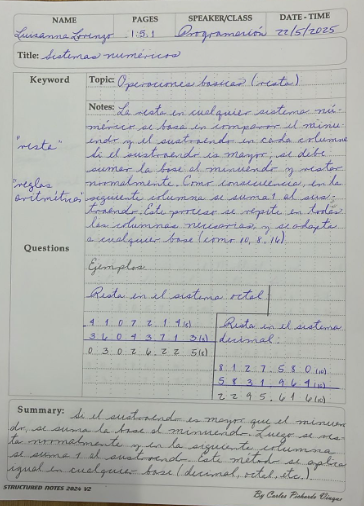 NAME PAGES SPEAKER/CLASS DATE - TIME
Luisanna Lorenzo 1.5.1 Programación 22/5/2025
Title: Sistemas numéricos
Keyword
Topic: Operaciones basicas (resta)
Notes: La resta en cualquier sistema nú-
mérico se basa en comparar el minu-
endo y el sustraendo en cada columna
"resta"
Si el sustraendo es mayor, se debe
sumar la base al minuendo y restar
"reglas aritmética"
normalmente. Como consecuencia, en la
siguiente columna se suma 1 al sus-
traendo. Este proceso se repite en todas
las columnas necesarias, y se adapta
a cualquier base (como 10, 8, 16).
Questions
Ejemplos
Resta en el sistema octal
Resta en el sistema
decimal.
4 1 0 7 2 1 4
3 6 0 4 3 7 1
0 3 0 2 6 2 2 5
8 1 2 7 . 5 8 0
5 8 3 1 . 9 6 4
2 2 9 5 . 6 1 6
Summary: Si el sustraendo es mayor que el minuen-
do, se suma la base al minuendo. Luego se res-
ta normalmente y en la siguiente columna
se suma 1 al sustraendo. Este método se aplica
igual en cualquier base (decimal, octal, etc.)
STRUCTURED NOTES 2024 V2
By Carlos Pichardo Viuque